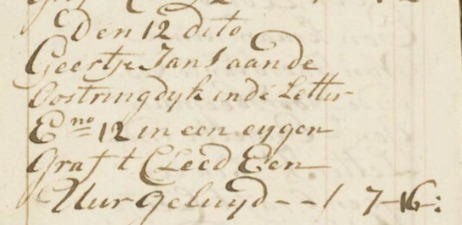 Den 12 dito
Geertje Jans aan de
Oostringdyk in de Letter
E no 12 in een eygen
Graf t Cleed Een
Uur geluyd - - / 7 - 16: